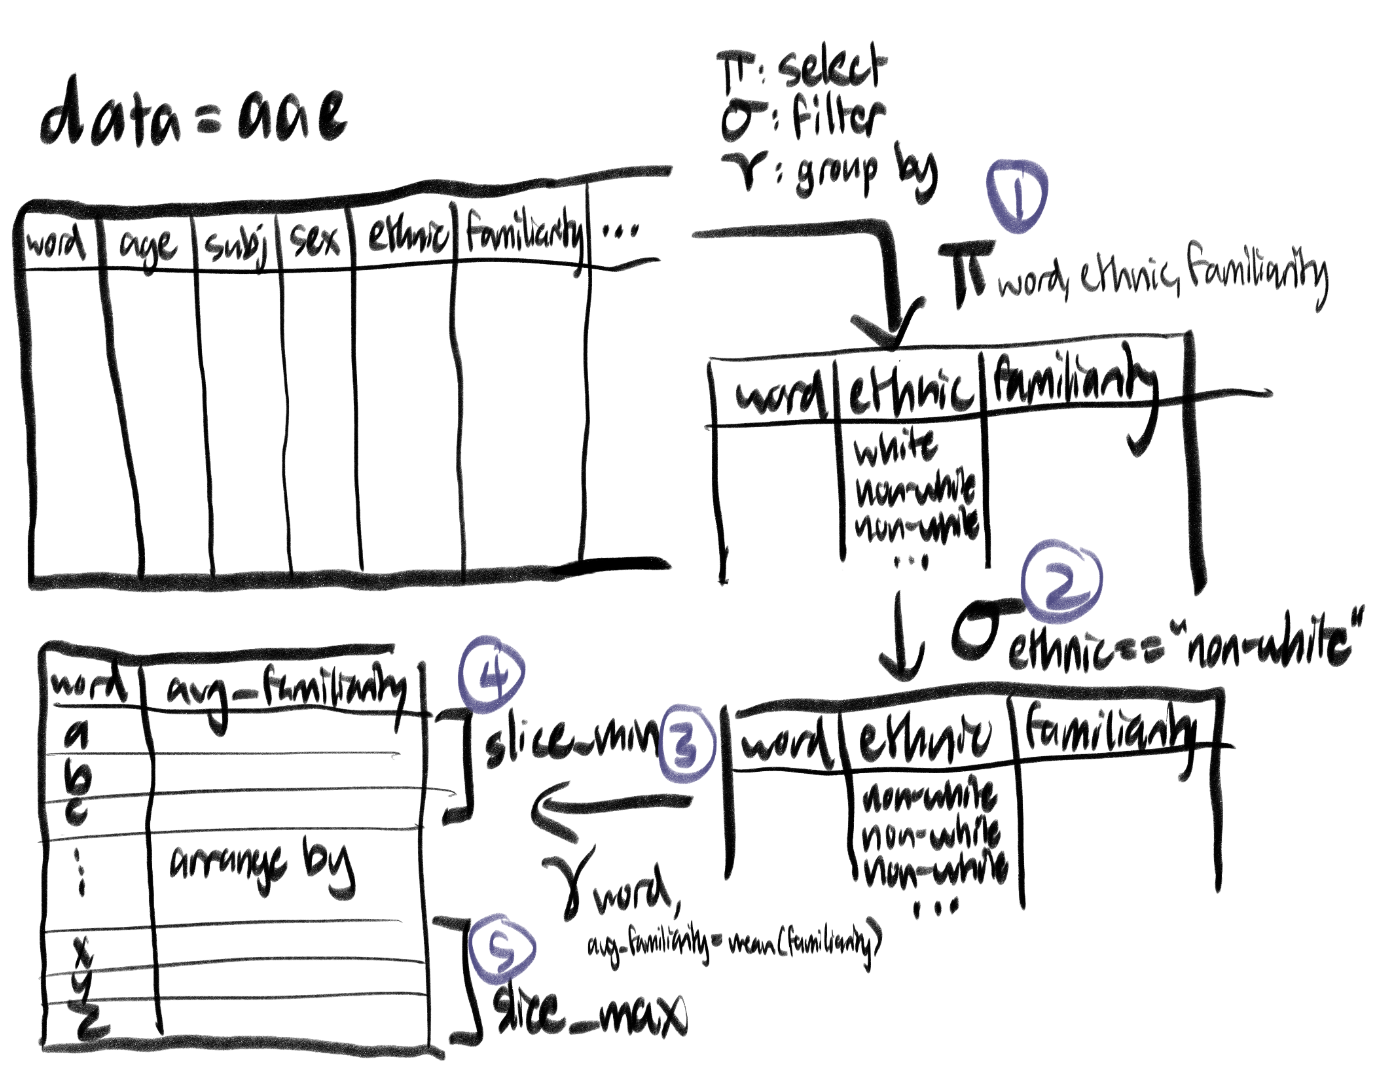 data = aae
π: select
σ: filter
γ: group by
word age subj sex ethnic familiarity ...
1
π word, ethnic, familiarity
word ethnic familiarity
white
non-white
non-white
...
2
σ ethnic == "non-white"
word ethnic familiarity
non-white
non-white
non-white
...
3
γ word,
avg-familiarity = mean(familiarity)
word avg_familiarity
a
b
c
⋮
arrange by
x
y
z
4
slice_min
5
slice_max